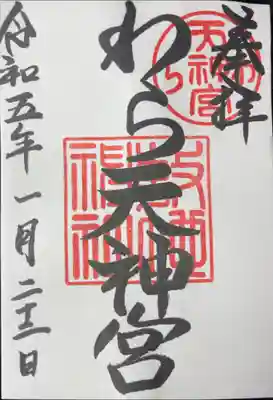 奉拝
わら天神宮
令和五年一月二十二日
わら天神宮